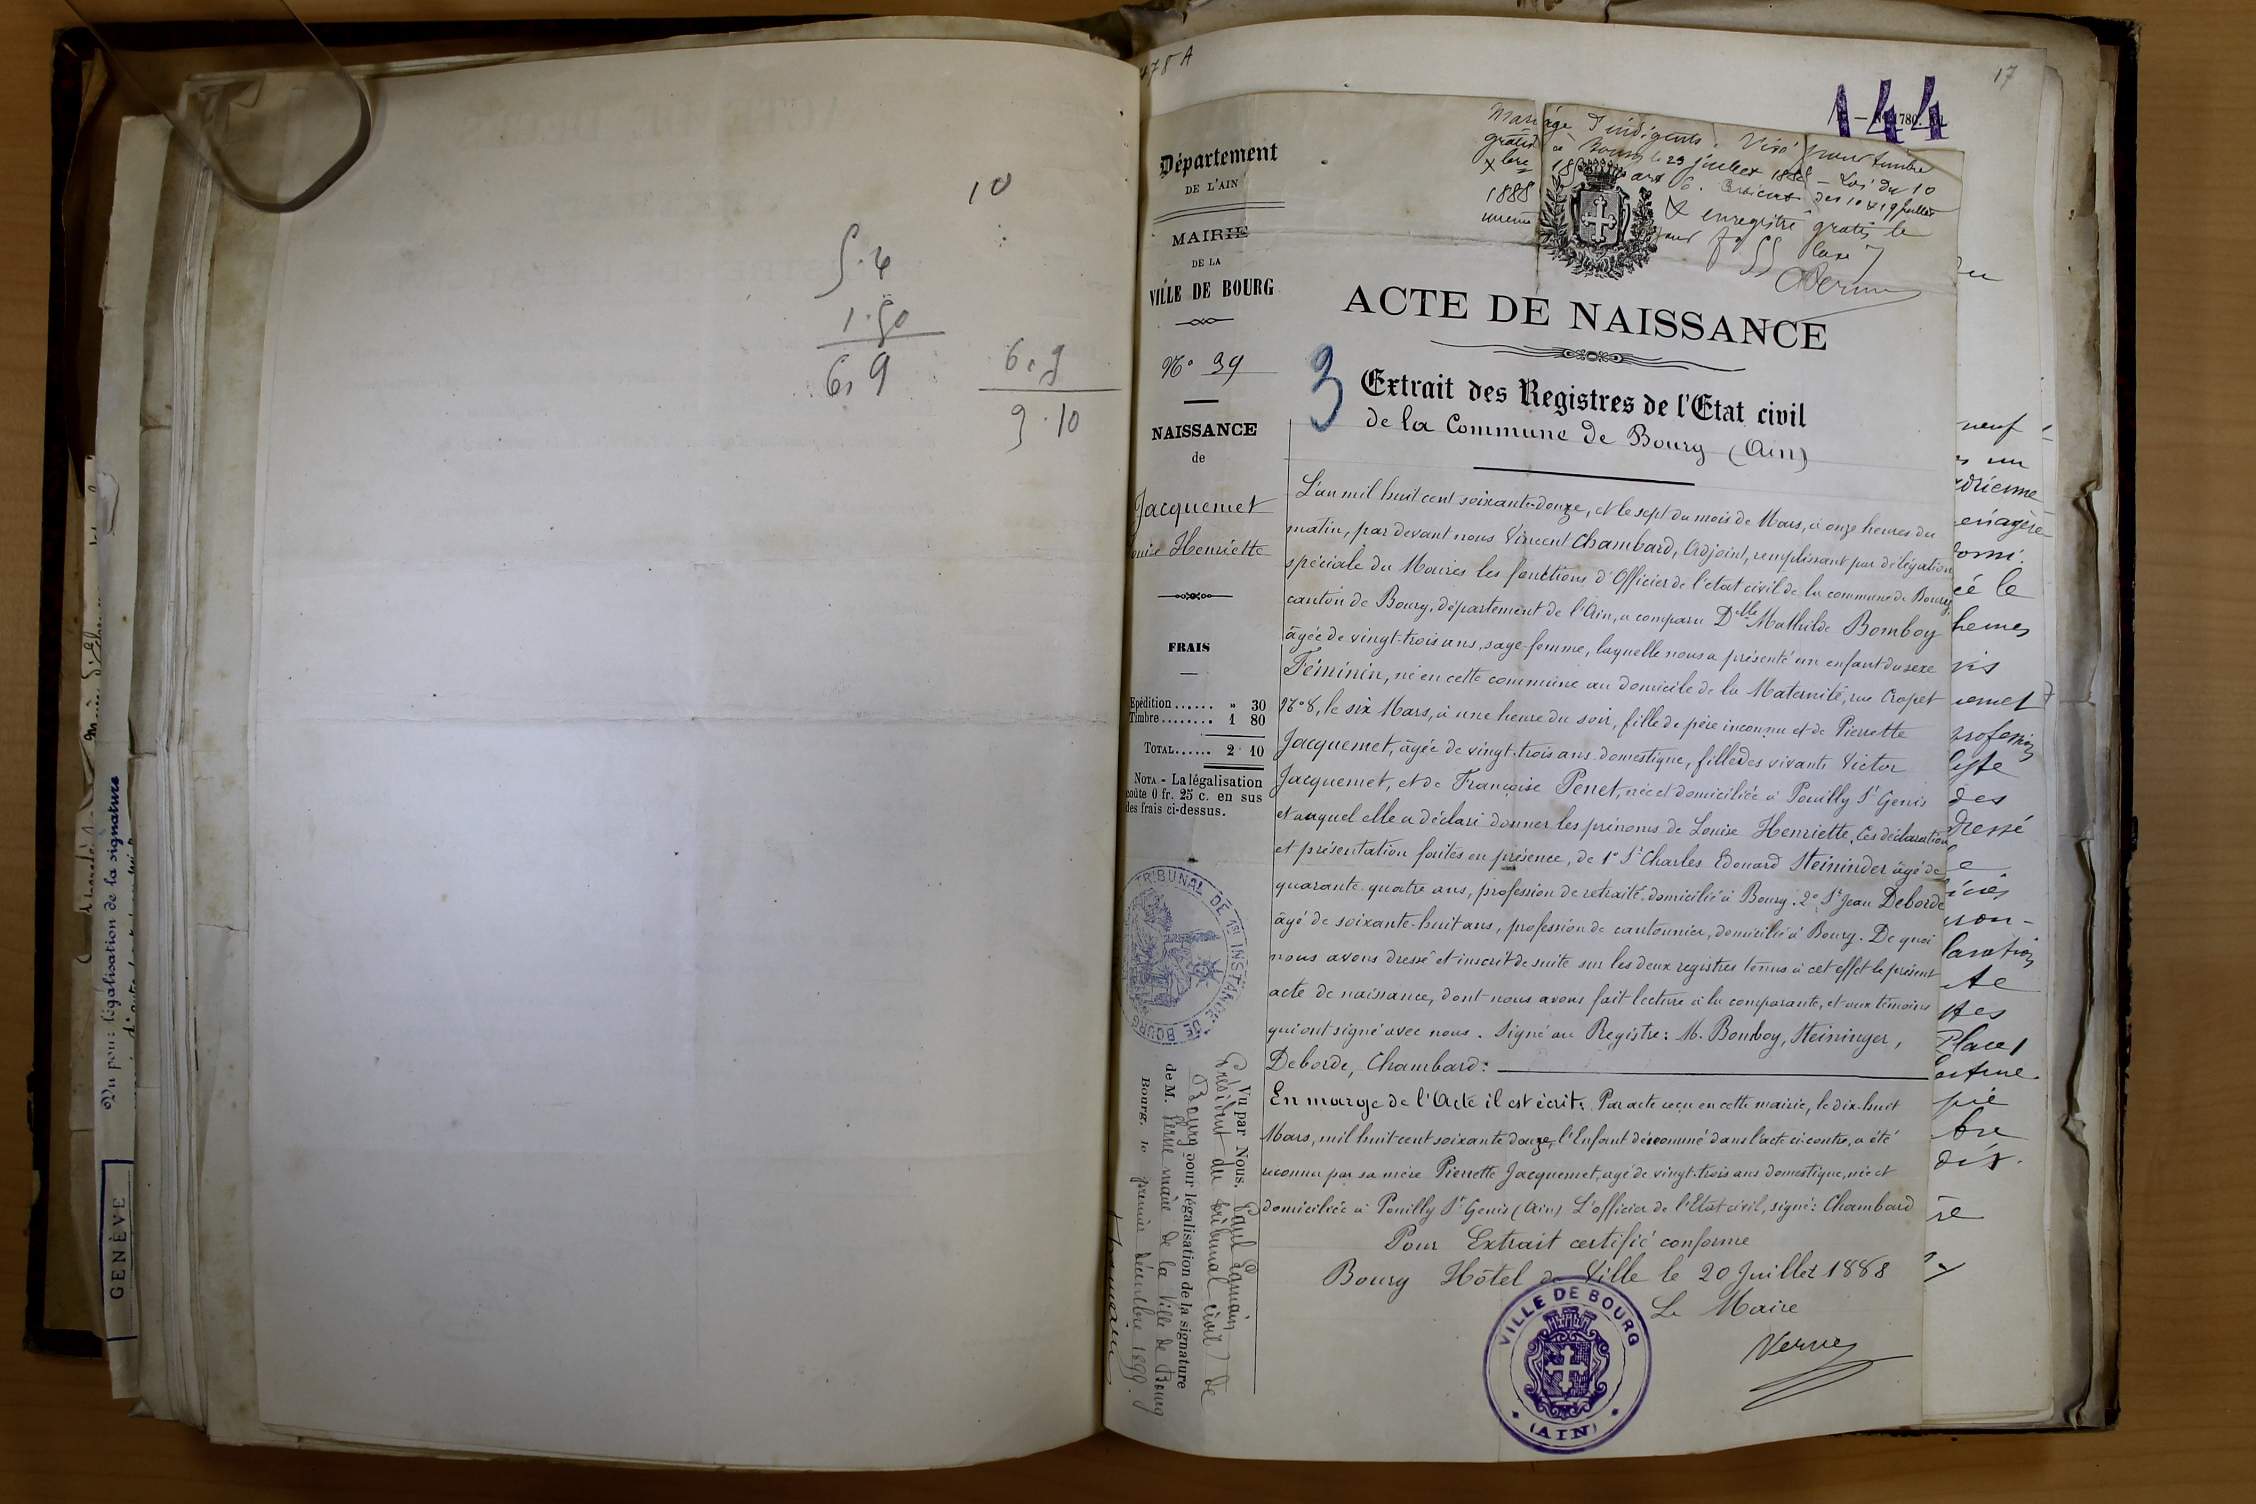 10
5.4
1.50
6,9
6,9
9.10
Vu pour légalisation de la signature
GENÈVE
478 A
17
144
Mariage d'indigents. Visé pour timbre
gratis à Bourg le 23 juillet 1888 - Loi du 10
Xbre
1888
& enregistré gratis le
Département
DE L'AIN
MAIRIE
DE LA
VILLE DE BOURG
N° 39
NAISSANCE
de
Jacquemet
Louise Henriette
FRAIS
Expédition...... » 30
Timbre........ 1 80
TOTAL...... 2 10
NOTA - La légalisation
coûte 0 fr. 25 c. en sus
des frais ci-dessus.
TRIBUNAL DE 1re INSTANCE DE BOURG
Vu par Nous, Paul Ramain
Président du tribunal civil de
Bourg pour légalisation de la signature
de M. Verne maire de la Ville de Bourg
Bourg, le premier décembre 1899.
ACTE DE NAISSANCE
3
Extrait des Registres de l'Etat civil
de la Commune de Bourg (Ain)
L'an mil huit cent soixante-douze, et le sept du mois de Mars, à onze heures du
matin, par devant nous Vincent Chambard, Adjoint, remplissant par délégation
spéciale du Maires les fonctions d'Officier de l'etat civil de la commune de Bourg,
canton de Bourg, département de l'Ain, a comparu Delle Mathilde Bomboy
âgée de vingt-trois ans, sage-femme, laquelle nous a présenté un enfant du sexe
Féminin, né en cette commune au domicile de la Maternité, rue Cropet
N° 8, le six Mars, à une heure du soir, fille de père inconnu et de Pierrette
Jacquemet, âgée de vingt-trois ans domestique, fille des vivants Victor
Jacquemet, et de Françoise Penet, née et domiciliée à Pouilly St Genis
et auquel elle a déclaré donner les prénoms de Louise Henriette. Ces déclaration
et présentation faites en présence, de 1° Sr Charles Edouard Steininder âgé de
quarante-quatre ans, profession de retraité domicilié à Bourg. 2° Sr Jean Deborde
âgé de soixante-huit ans, profession de cantonnier, domicilié à Bourg. De quoi
nous avons dressé et inscrit de suite sur les deux registres tenus à cet effet le présent
acte de naissance, dont nous avons fait lecture à la comparante, et aux témoins
qui ont signé avec nous. Signé au Registre: M. Bomboy, Steininger,
Deborde, Chambard:
En marge de l'Acte il est écrit: Par acte reçu en cette mairie, le dix-huit
Mars, mil huit cent soixante douze, l'Enfant dénommé dans l'acte ci-contre, a été
reconnu par sa mère Pierrette Jacquemet, agé de vingt-trois ans domestique, née et
domiciliée à Pouilly St Genis (Ain) L'officier de l'Etat civil, signé: Chambard
Pour Extrait certifié conforme
Bourg Hôtel de Ville le 20 Juillet 1888
Le Maire
Verne
VILLE DE BOURG
(AIN)
neuf
un
le
des
Place